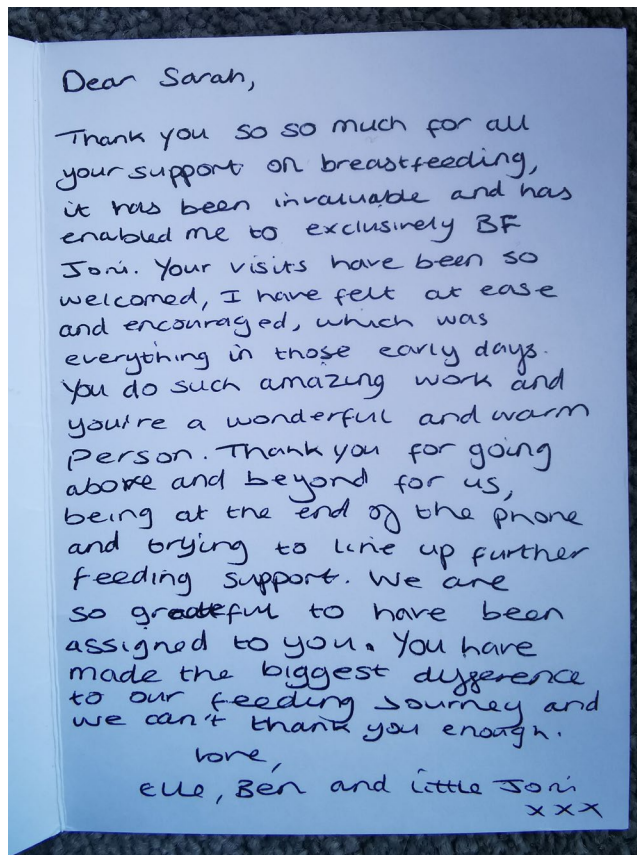 Dear Sarah,
Thank you so so much for all
your support on breastfeeding,
it has been invaluable and has
enabled me to exclusively BF
Joni. Your visits have been so
welcomed, I have felt at ease
and encouraged, which was
everything in those early days.
You do such amazing work and
you're a wonderful and warm
Person. Thank you for going
above and beyond for us,
being at the end of the phone
and trying to line up further
feeding support. We are
so grateful to have been
assigned to you. You have
made the biggest difference
to our feeding journey and
we can't thank you enough.
Love,
Elle, Ben and little Joni
xxx